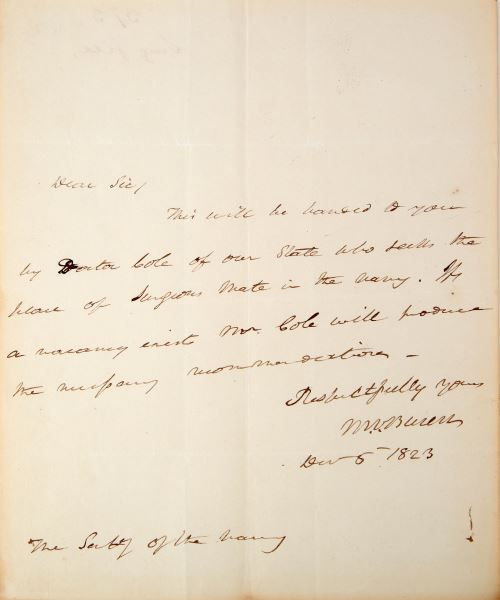 Dear Sir/
This will be handed to you
by Doctor Cole of our State who seeks the
place of Surgeons Mate in the navy. If
a vacancy exist Mr. Cole will produce
the necessary recommendations –
Respectfully yours
MVBuren
Dec 5 1823
The Secty of the Navy